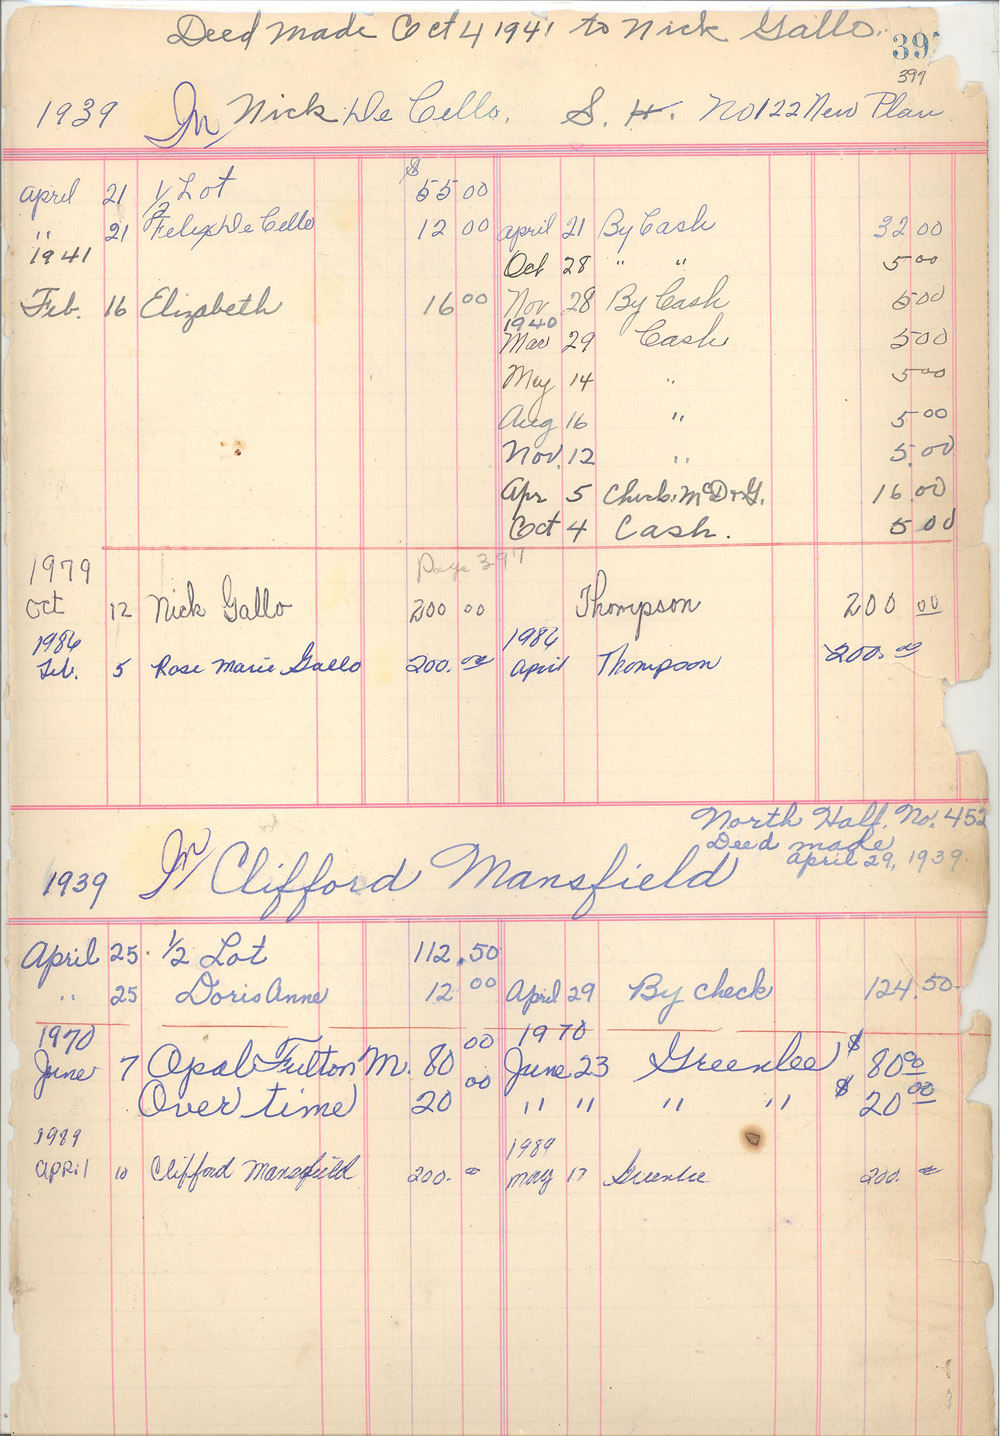 Deed made Oct 4 1941 to Nick Gallo.
397
397
1939 In Nick De Cello. S. H. No 122 New Plan
$
April 21 1/2 Lot 55 00
" 21 Felix De Cello 12 00 April 21 By Cash 32 00
1941 Oct 28 " " 5 00
Feb. 16 Elizabeth 16 00 Nov 28 By Cash 5 00
1940
Mar 29 Cash 5 00
May 14 " 5 00
Aug 16 " 5 00
Nov. 12 " 5.00
Apr 5 Check. 16.00
Oct 4 Cash. 5 00
1979 Page 397
Oct 12 Nick Gallo 200 00 Thompson 200 00
1986 1986
Feb. 5 Rose Marie Gallo 200. 00 April Thompson 200. 00
North Half. No. 452
Deed made
April 29, 1939.
1939 In Clifford Mansfield
April 25. 1/2 Lot 112.50
" 25 Doris Anne 12 00 April 29 By check 124.50
1970 1970
June 7 Opal Fulton M. 80 00 June 23 Greenlee $ 80 00
Over time 20 00 " " " " $ 20 00
1989 1989
April 10 Clifford Mansfield 200. 00 May 17 Greenlee 200. 00